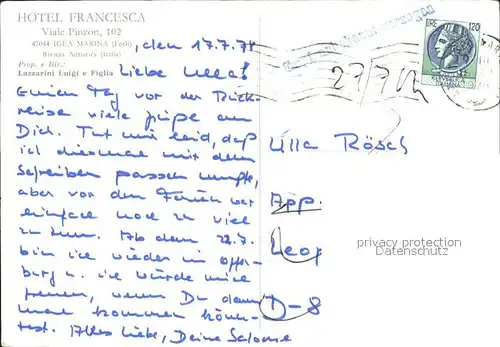 HOTEL FRANCESCA
Viale Pinzon, 102
47044 IGEA MARINA (Forlì)
Riviera Adriatica (Italia)
Prop. e Dir.:
Lazzarini Luigi e Figlia
, den 17.7.78
Liebe Ulla!
Einen Tag vor der Rück-
reise viele Grüße an
Dich. Tut mir leid, daß
ich diesmal mit dem
Schreiben passen mußte,
aber vor den Ferien war
einfach noch zu viel
zu tun. Ab dem 22.7.
bin ich wieder in Offen-
burg u. ich würde mich
freuen, wenn Du dann
mal kommen könn-
test. Alles Liebe, Deine Salome
27/7
LIRE 120
Ulla Rösch
App.
D-8
privacy protection
Datenschutz